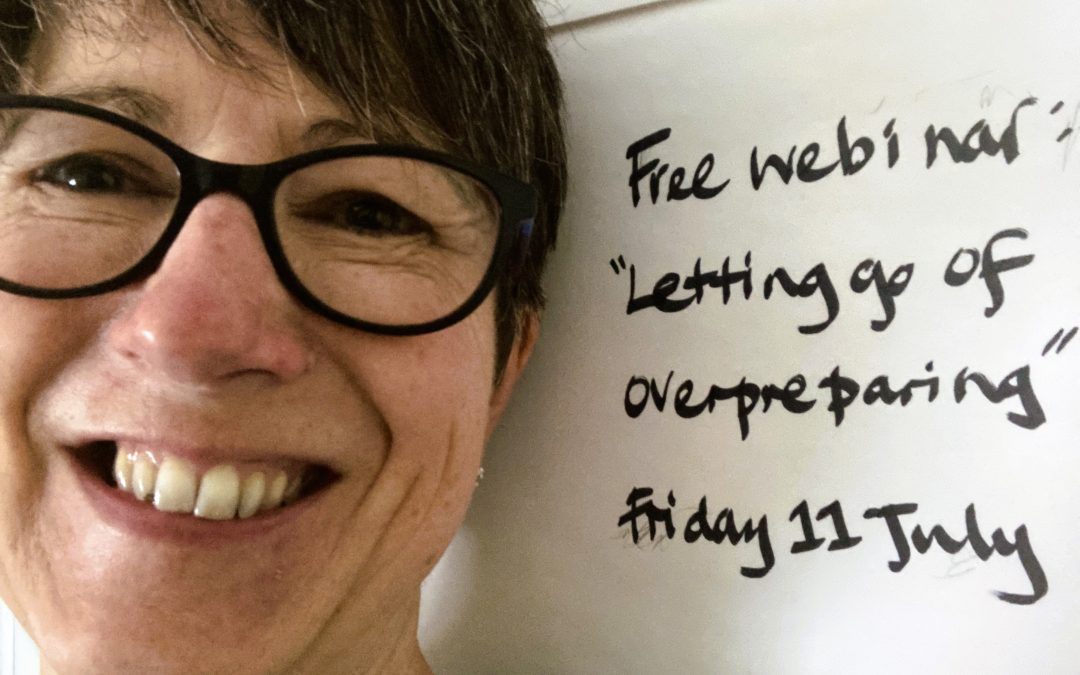 Free webinar:
"Letting go of
overpreparing"
Friday 11 July